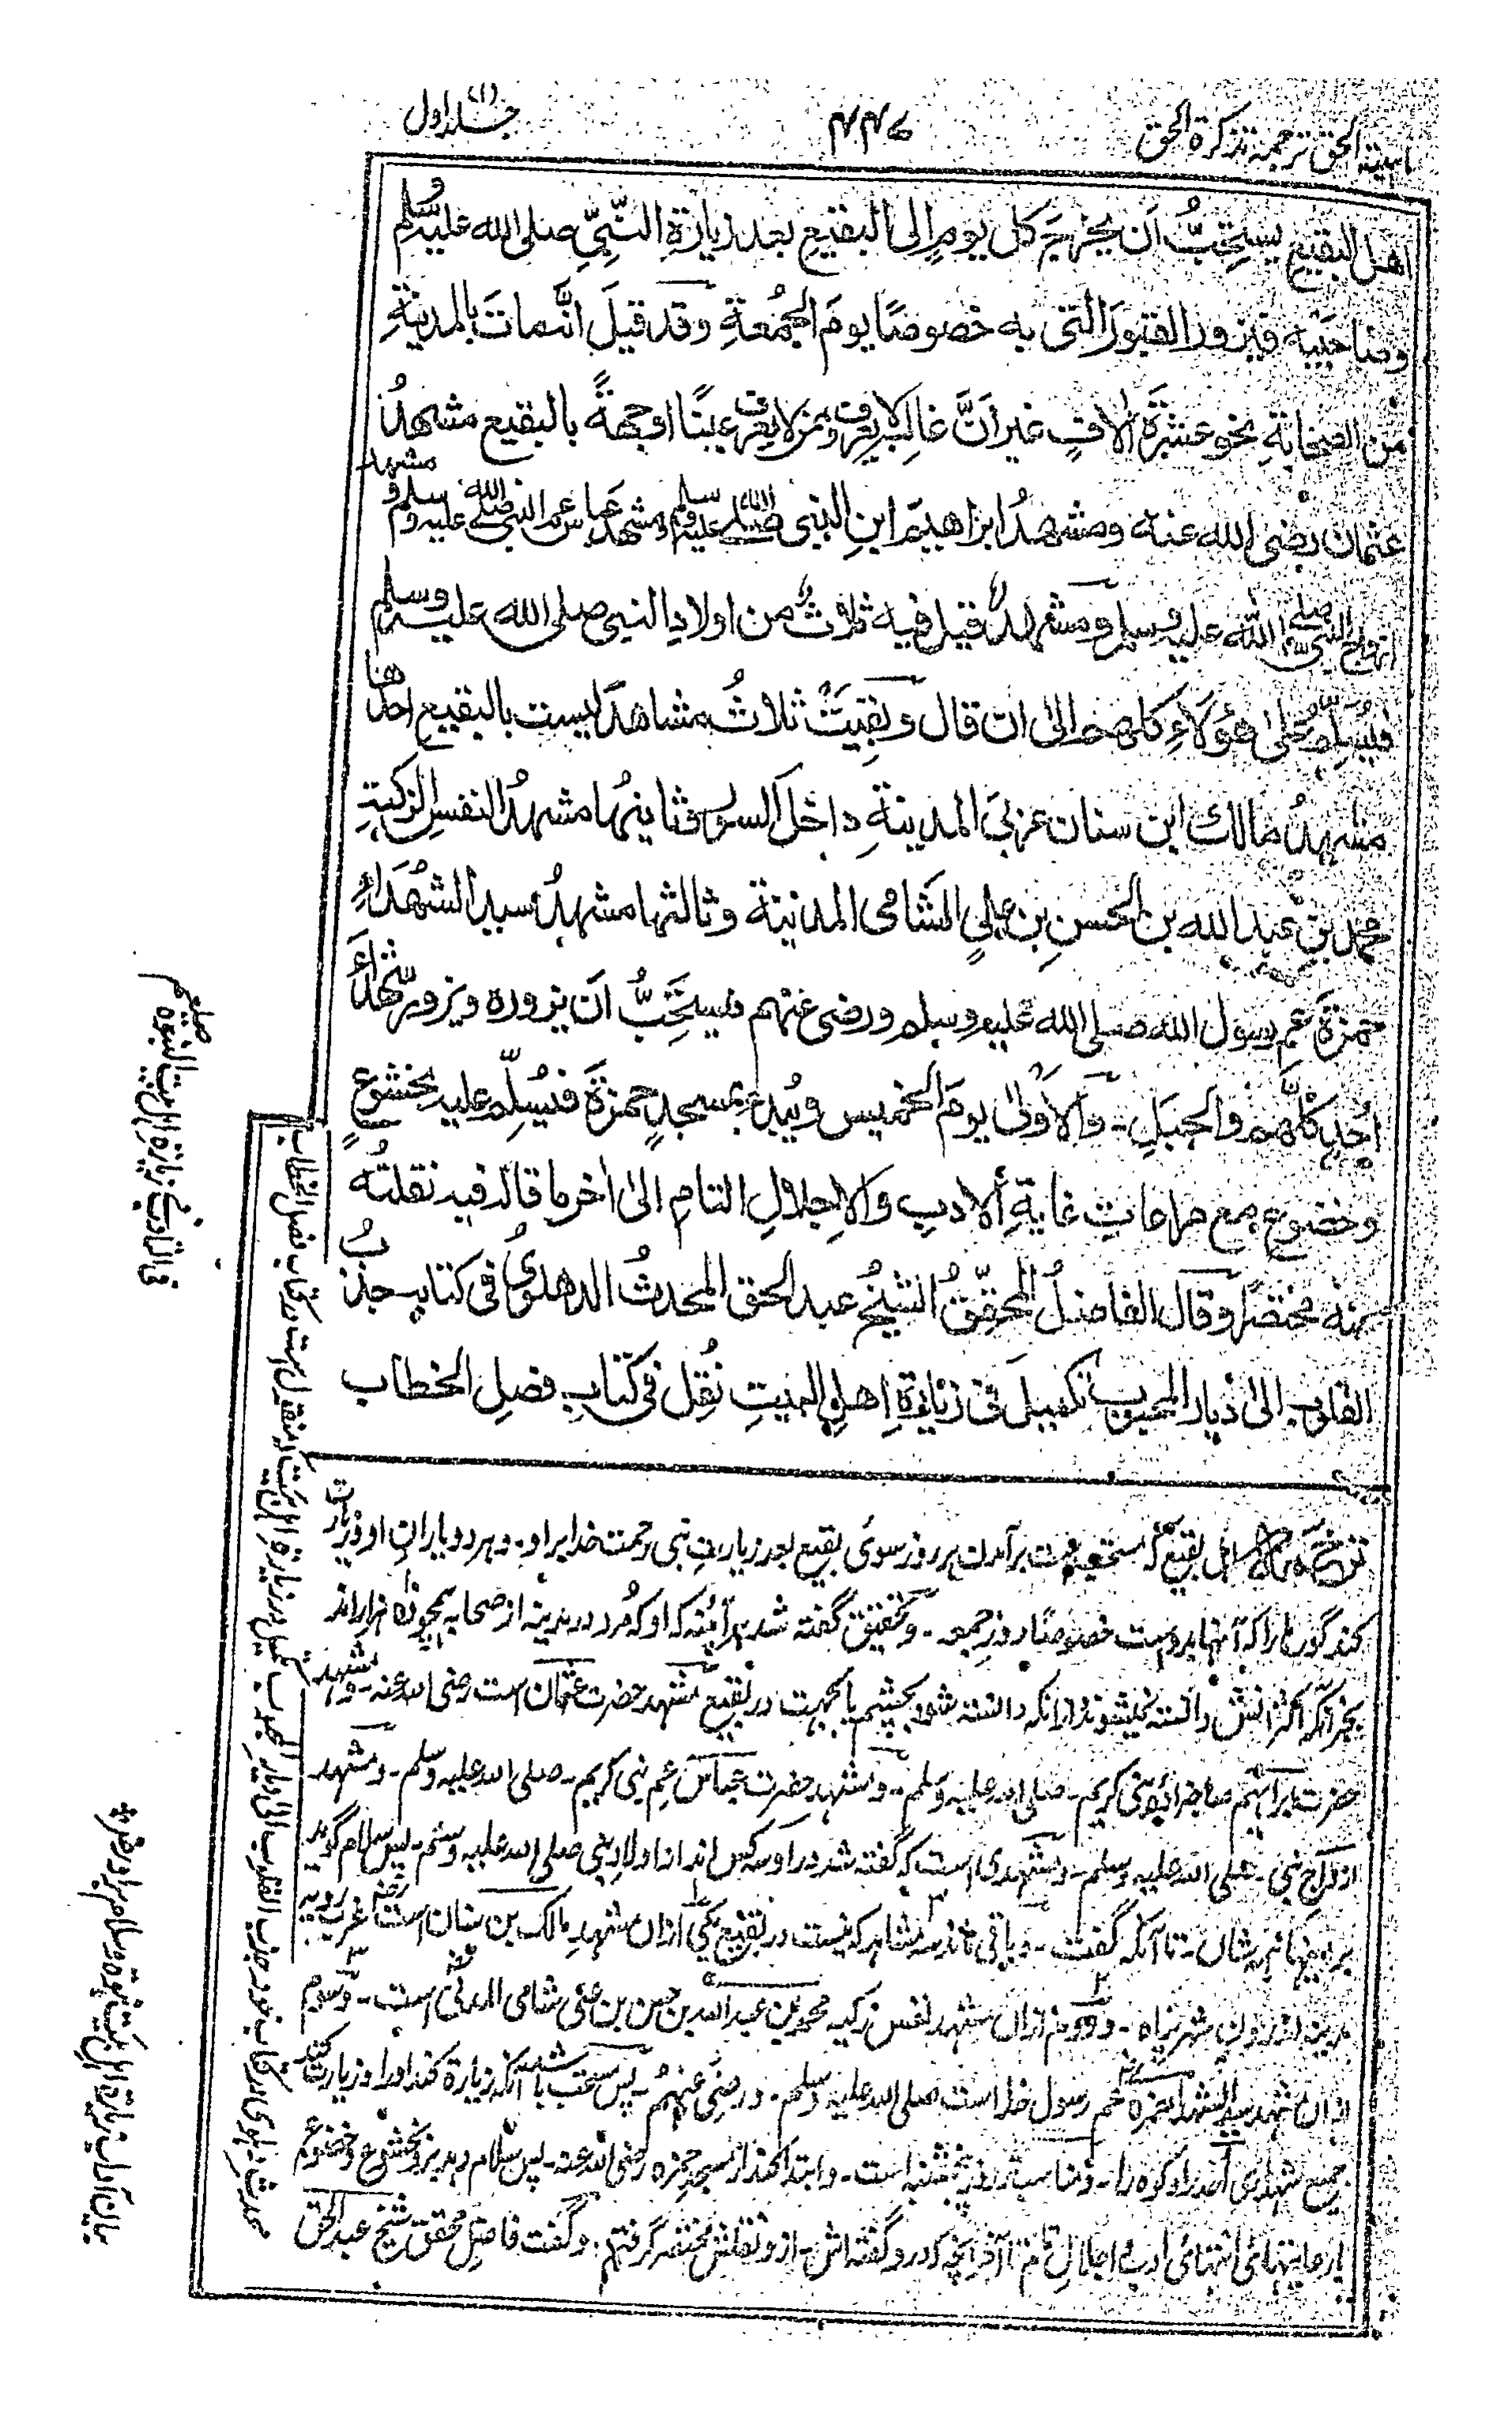 ترجمة تذكرة الحق
۴۴۷
جلد اول (۱)
اهل البقيع يستحبُّ اَن يخرجَ كل يومٍ الى البقيعِ بعد زيارةِ النَّبِيِّ صلى الله عليه وسلم
وصاحبَيه فيزور القبورَ التى به خصوصًا يومَ الجمُعةِ وقد قيلَ انَّه مات بالمدينةِ
من الصحابةِ نحو عشرَة اٰلافٍ غير اَنَّ غالبَهم لا يعرف عينًا او جهةً بالبقيع مشهدُ
عثمان رضى الله عنه ومشهدُ ابراهيمَ ابنِ النبى صلى الله عليه وسلم ومشهد عباس عم النبى صلى الله عليه وسلم ومشهد
ازواج النبى صلى الله عليه وسلم ومشهدٌ قيل فيه ثلاثٌ من اولادِ النبى صلى الله عليه وسلم
فيُسلِّم على هٰؤلاءِ كلهم الىٰ ان قال وبقِيَتْ ثلاثُ مشاهدَ ليست بالبقيع احدها
مشهدُ مالك ابن سنان غربىَ المدينةِ داخلَ السور وثانيهُا مشهدُ النفسِ الزكيةِ
محمد بنِ عبد الله بن الحسنِ بن علىٍ الشامى المدنية وثالثها مشهدُ سيد الشُهَداءِ
حمزةَ عمِ رسول الله صلى الله عليه وسلم ورضى عنهم فيستحَبُّ اَن يزوره ويزور شُهداءَ
اُحدٍ كلَّهم والجبلِ ۔ والاَولىٰ يومَ الخميس ويُبدءَ بمسجدِ حمزةَ فيُسلّم عليه بخشوعٍ
وخضوعٍ مع مراعاتِ غايةِ الادبِ والاجلالِ التامِ الىٰ اٰخر ما قال فيه نقلتُه
منه مختصرًا وقال الفاضلُ المحقّقُ الشيخُ عبد الحق المحدثُ الدهلوىُ فى كتابه جذبُ
القلوب الىٰ ديار المحبوب تكميل فى زيارةِ اهلِ البيتِ نُقِل فى كتابِ فصلِ الخطاب
ترجمہ اہل بقیع کہ مستحب ست برآمدن ہر روز سوئے بقیع بعد زیارت نبی رحمت خدا بر او ۔ و ہر دو یاران او و زیارت
کند گورہا را کہ آنہا بدوست خصوصًا روز جمعہ ۔ و تحقیق گفتہ شد ہر آئینہ کہ او کہ مُرد در مدینہ از صحابہ ہمچو دہ ہزار اند
بجز آنکہ اکثر انش دانستہ نمیشوند از آنکہ دانستہ شود بچشم یا بجہت در بقیع مشہد حضرت عثمان است رضی اللہ عنہ ۔ و مشہد
حضرت ابراہیم صاحبزادہ نبی کریم ۔ صلی اللہ علیہ وسلم ۔ و مشہد حضرت عباس عم نبی کریم ۔ صلی اللہ علیہ وسلم ۔ و مشہد
ازواج نبی ۔ صلی اللہ علیہ وسلم ۔ و مشہدی است کہ گفتہ شد در او سہ کس اند از اولاد نبی صلی اللہ علیہ وسلم ۔ پس سلام گوید
بر اینہا ہمہ شان ۔ تا آنکہ گفت ۔ و باقی ماند سہ مشاہد کہ نیست در بقیع یکی ازان مشہد مالک بن سنان است غرب رویہ
مدینہ اندرون شہر پناہ ۔ و دوم ازان مشہد نفس زکیہ محمد بن عبد اللہ بن حسن بن علی شامی المدنی است ۔ و سوم
ازان مشہد سید الشہدا حمزہ عم رسول خدا است صلی اللہ علیہ وسلم ۔ و رضی عنہم ۔ پس مستحب باشد آنکہ زیارة کند او را و زیارت کند
جمیع شہدای اُحد را و کوہ را ۔ و مناسب تر روز پنجشنبہ است ۔ و ابتدا کند از مسجد حمزہ رضی اللہ عنہ ۔ پس سلام دہد بر و بخشوع و خضوع
انتہائی ادب و اجلال تام تا آخر آنچہ کہ در و گفتہ اش ۔ از و نقلش مختصر گرفتم ۔ و گفت فاضل محقق شیخ عبد الحق
محدث دہلوی در کتاب خود جذب القلوب الی دیار المحبوب تکمیل در زیارة اہل بیت کہ منقول ست در کتاب فصل الخطاب
فی التادب فی زیارة اہل بیت النبوة صلعم
بیان آداب زیارة اہل بیت نبوة و سلام